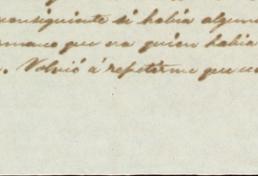 consiguiente si habia alguna
rmano que era quien habia
. Volvió á repetirme que